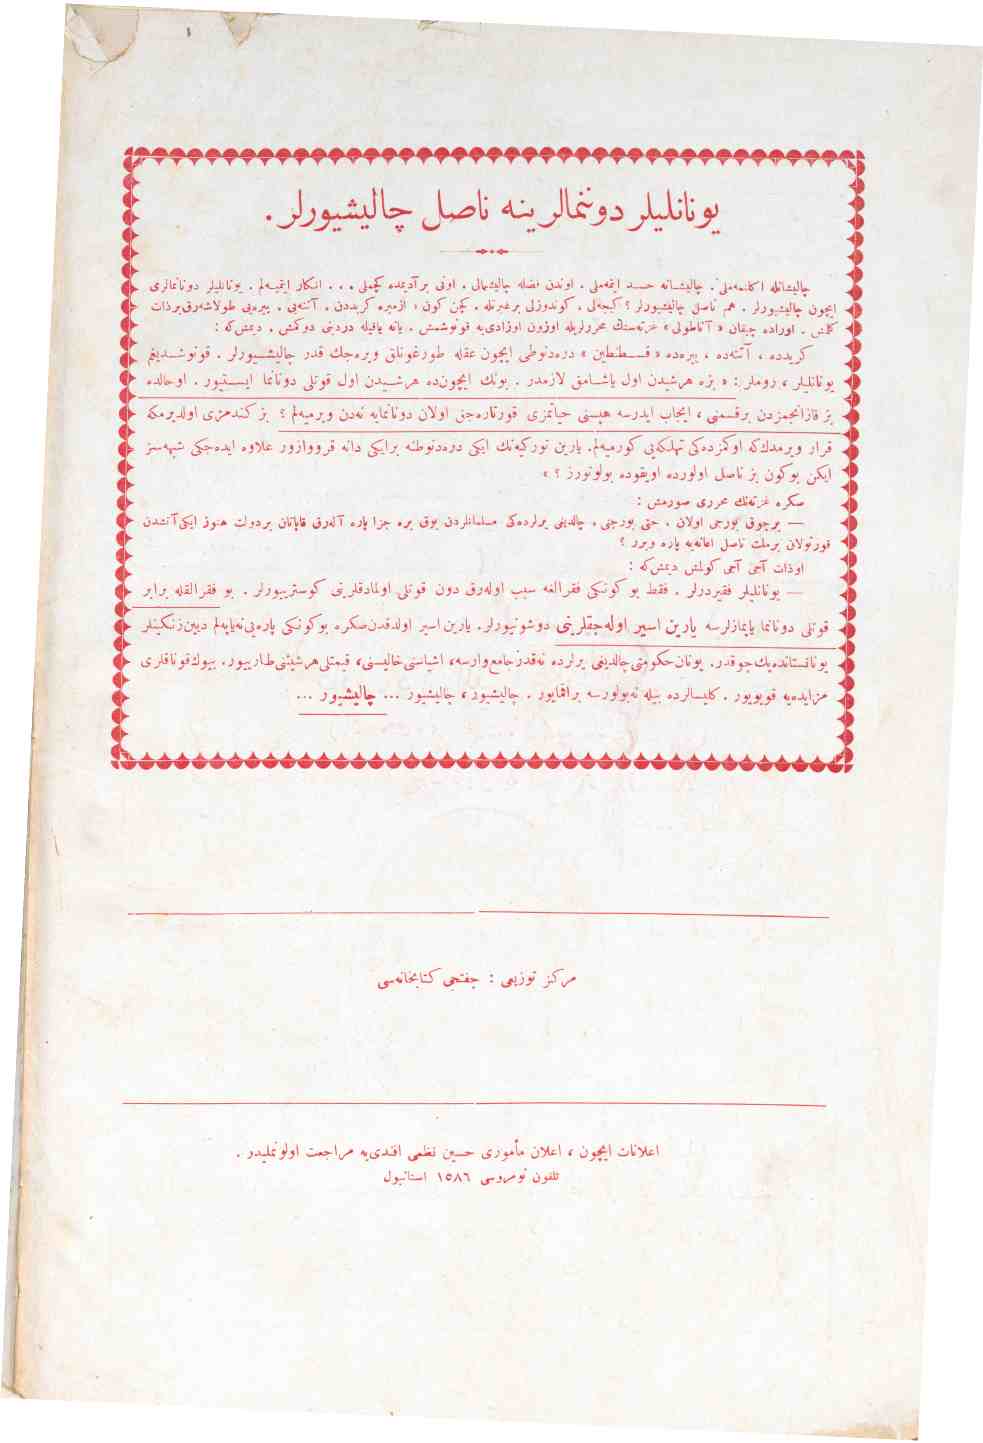 یونانلیلر دونمالرینه ناصل چالیشیورلر .
چالیشانله اكلنمه‌ملی . چالیشـانه حسـد ایتمه‌ملی . اوندن فضله چالیشمالی . اونی بر آدیمده كچملی ... انكار ایتمیـه‌لم . یونانلیلر دونانمالری
ایچون چالیشیورلر . هم ناصل چالیشیورلر ؟ كیجه‌لی ، كوندوزلی بر غیرتله . كچن كون ، ازمیره كریددن ، آتنه‌یی ، پیره‌یی طولاشه‌رق بر ذات
كلمش . اوراده چیقان « آناطولی » غزته‌سنك محررلریله اوزون اوزادی‌یه قونوشمش . یانه یاقیله دردینی دوكمش . دیمش‌كه :
كریدده ، آتنه‌ده ، پیره‌ده « قسطنطین » دره‌دنوطی ایچون عقله طورغونلق ویره‌جك قدر چالیشـیورلر . قونوشـدیغم
یونانلیلر ، روملر : « بزه هرشیدن اول یاشـامق لازمدر . بونك ایچون‌ده هرشـیدن اول قوتلی دونانما ایسـتیور . اوحالده
بز قازانجمزدن برقسمنی ، ایجاب ایدرسه هپسنی حیاتمزی قورتاره‌جق اولان دونانمایه نه‌دن ویرمیه‌لم ؟ بز كندمزی اولدیرمكه
قرار ویرمدك‌كه اوكمزده‌كی تهلكه‌یی كورمیه‌لم . یارین توركیه‌نك ایكی دره‌دنوطنه برایكی دانه قرووازور علاوه ایده‌جكی شبهه‌سز
ایكن بوكون بز ناصل اولورده اویقوده بولونورز ؟ »
صكره غزته‌نك محرری صورمش :
— برچوق بورجی اولان ، حتی بورجنی ، چالدیغی یرلرده‌كی مسلمانلردن بوق یره جزا پاره آله‌رق قاپاتان بردولت هنوز ایكی آتشدن
قورتولان برملت ناصل اعانه‌یه پاره ویرر ؟
اوذات آجی آجی كولمش دیمش‌كه :
— یونانلیلر فقیردرلر . فقط بو كونكی فقرالغه سبب اوله‌رق دون قوتلی اولمادقلرینی كوستریورلر . بو فقرالقله برابر
قوتلی دونانما یاپمازلرسه یارین اسیر اوله‌جقلرینی دوشونیورلر . یارین اسیر اولدقدن‌صكره بوكونكی پاره‌یی نه‌یاپه‌لم دیین زنكینلر
یونانستانده‌پك‌چوقدر . یونان حكومتی چالدیغی یرلرده نه‌قدر جامع وارسه ، اشیاسنی خالیسنی ، قیمتلی هرشیئنی طاربیور . بیوك قوناقلری
مزایده‌یه قویویور . كلیسالرده بیله نه‌بولورسه براقمایور . چالیشیور ، چالیشیور ... چالیشـیور ...
مركز توزیعی : جفتجی كتابخانه‌سی
اعلانات ایچون ، اعلان مأموری حسین نظمی افندی‌یه مراجعت اولونملیدر .
تلفون نومروسی ١٥٨٦ استانبول